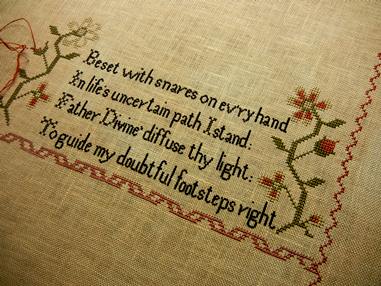 Beset with snares on ev'ry hand
In life's uncertain path I stand:
Father Divine' diffuse thy light:
To guide my doubtful footsteps right